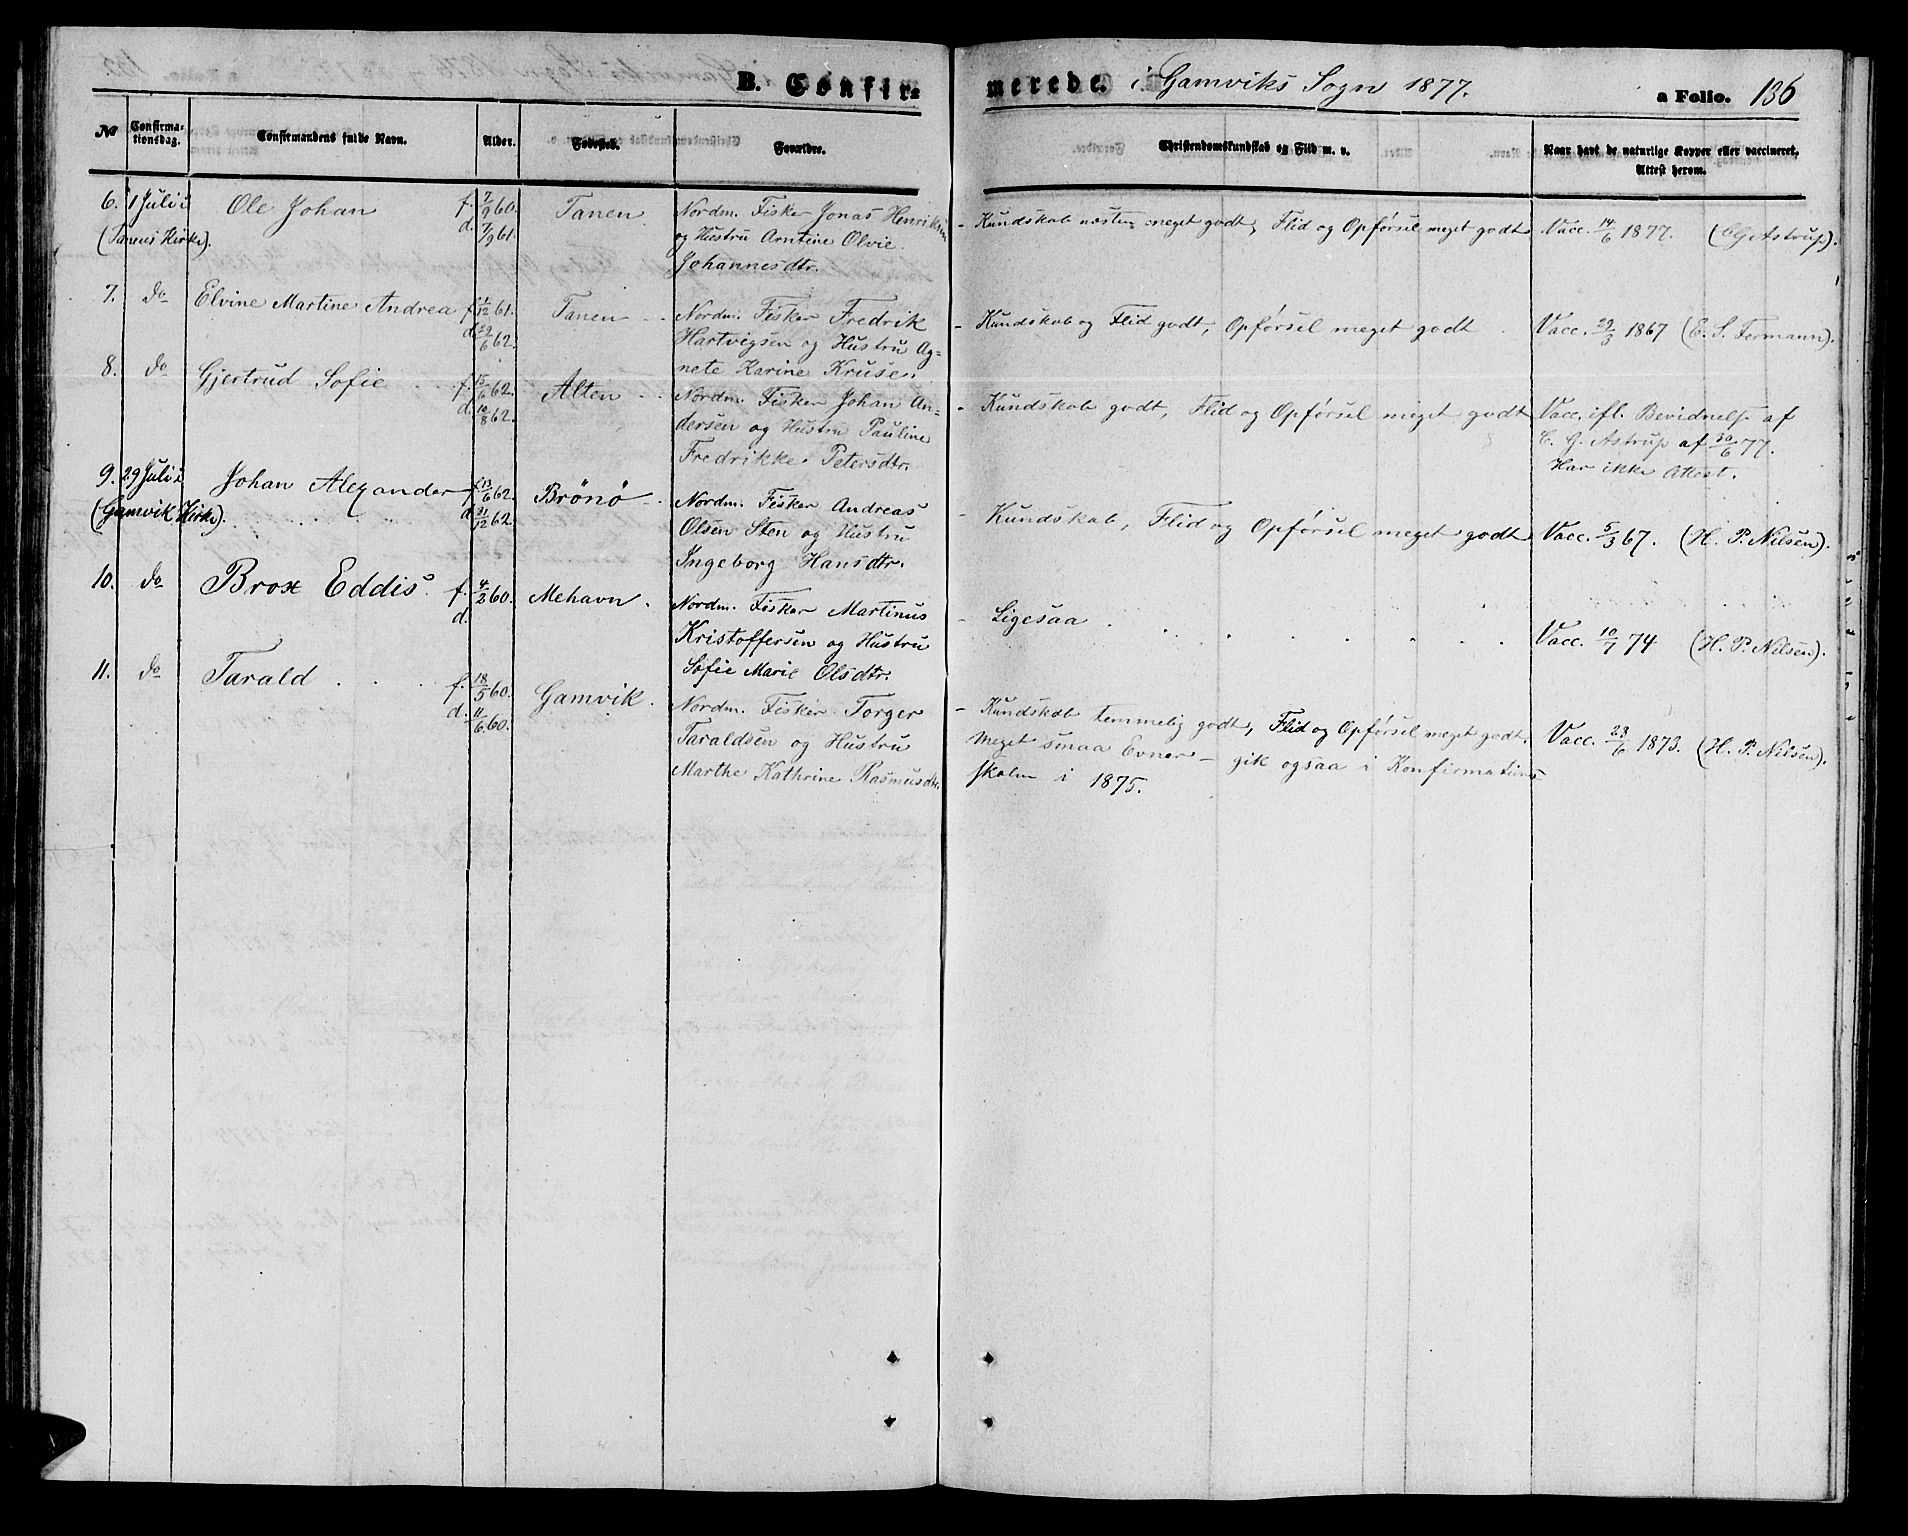 B. Confir-
merede. i Gamviks Sogn 1877.
a Folio. 136
№
Confirma-
tionsdag.
Confirmandens fulde Navn.
Alder.
Fødested.
Forældre.
Christendomskundskab og Flid m. v.
Naar havt de naturlige Kopper eller vaccineret,
Attest herom.
6. 1 Juli i Ole Johan f. 7/9 60. Tanen Nordm. Fisker Jonas Henriksen - Kundskab næsten meget godt, Flid og Opførsel meget godt. Vacc. 14/6 1877. (C G Astrup).
(Tanens Kirke). d. 7/9 61. og Hustru Arntine Olvie
Johannesdtr.
7. do Elvine Martine Andrea f. 1/12 61. Tanen Nordm. Fisker Fredrik - Kundskab og Flid godt, Opførsel meget godt Vacc. 29/3 1867 (E. S. Fermann).
d. 29/6 62. Hartvigsen og Hustru Ag-
nete Karine Kruse.
8. do Gjertrud Sofie f. 15/6 62. Alten Nordm. Fisker Johan An- - Kundskab godt, Flid og Opførsel meget godt Vacc. ifl. Bevidnelse af
d. 10/8 62. dersen og Hustru Pauline C. G. Astrup af 30/6 77.
Fredrikke Petersdtr. Har ikke Attest.
9. 29 Juli i Johan Alexander f. 13/6 62. Brönö Nordm. Fisker Andreas - Kundskab, Flid og Opførsel meget godt Vacc. 5/3 67. (H. P. Nilsen).
(Gamvik Kirke). d. 31/12 62. Olsen Sten og Hustru
Ingeborg Hansdtr.
10. do Brox Eddis. f. 4/2 60. Mehavn. Nordm. Fisker Martinus - Ligesaa Vacc. 10/7 74 (H. P. Nilsen).
d. Kristoffersen og Hustru
Sofie Marie Olsdtr.
11. do Tarald f. 18/5 60. Gamvik. Nordm. Fisker Torger - Kundskab temmelig godt, Flid og Opførsel meget godt. Vacc. 23/6 1873. (H. P. Nilsen).
d. 11/6 60. Taraldsen og Hustru Meget smaa Evner - gik ogsaa i Konfirmations-
Marthe Kathrine Rasmusdtr. skolen i 1875.